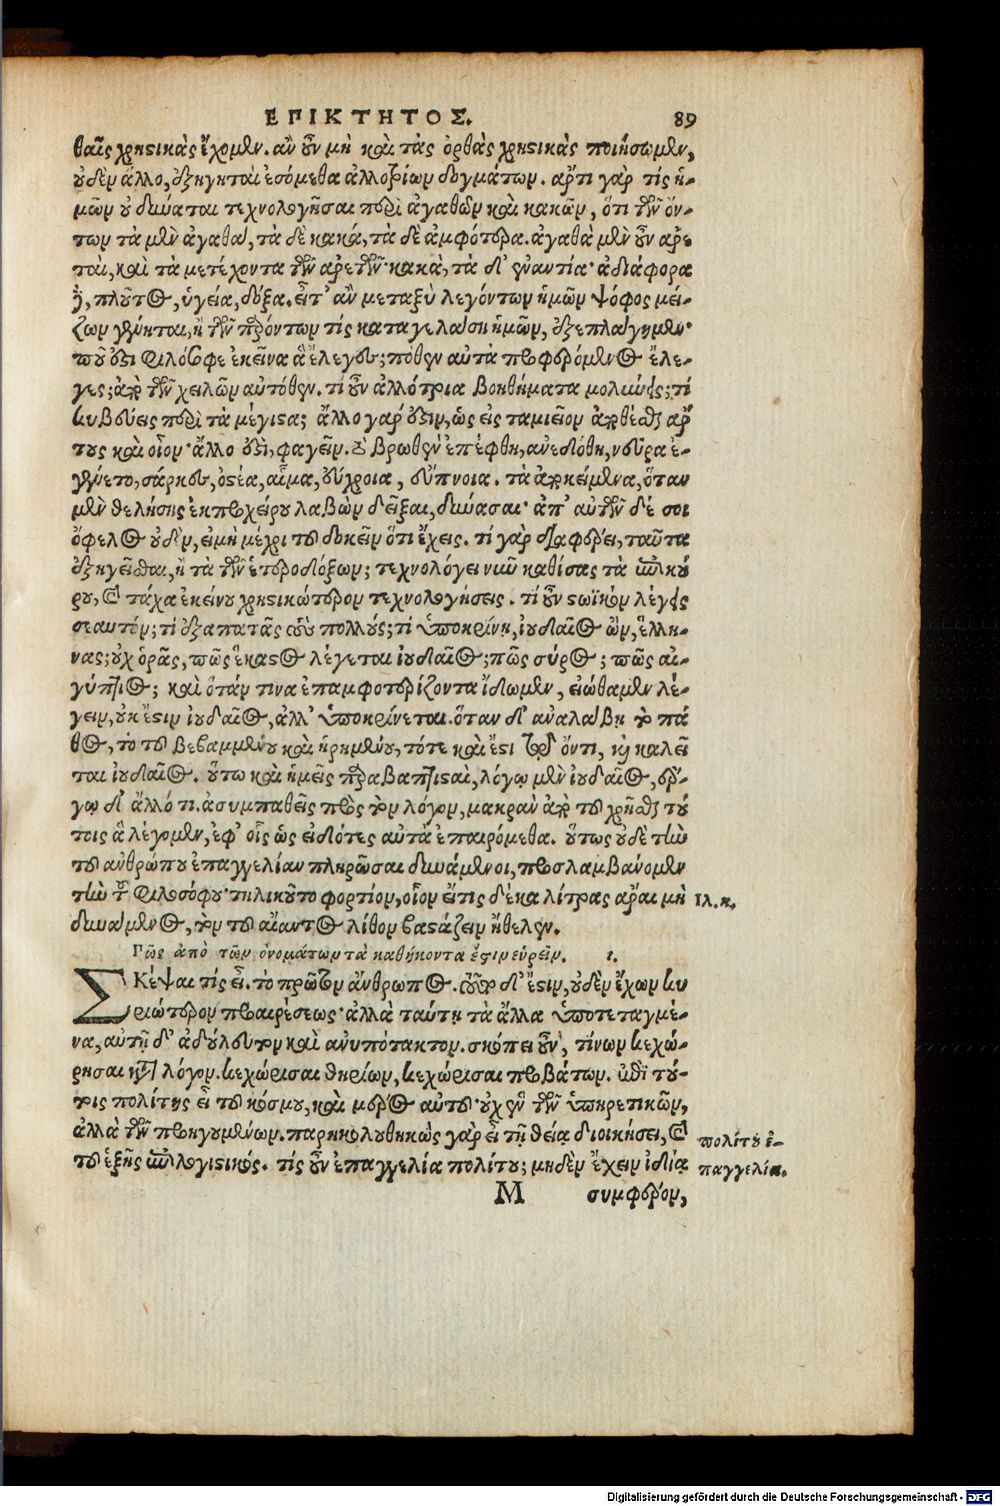 ΕΠΙΚΤΗΤΟΣ. 89
θαῖς χρηστικὰς ἔχομεν. ἂν οὖν μὴ καὶ τὰς ὀρθὰς χρηστικὰς ποιήσωμεν,
οὐδὲν ἄλλο, ἐξηγηταὶ ἐσόμεθα ἀλλοτρίων δογμάτων. ἄρτι γὰρ τίς ἡ-
μῶν οὐ δύναται τεχνολογῆσαι περὶ ἀγαθῶν καὶ κακῶν, ὅτι τῶν ὄν-
των τὰ μὲν ἀγαθὰ, τὰ δὲ κακά, τὰ δὲ ἀμφότερα. ἀγαθὰ μὲν οὖν ἀρε
ταὶ, καὶ τὰ μετέχοντα τῶν ἀρετῶν· κακὰ, τὰ δ' ἐναντία· ἀδιάφορα
δὲ, πλοῦτος, ὑγεία, δόξα. εἶτ' ἂν μεταξὺ λεγόντων ἡμῶν ψόφος μεί-
ζων γένηται, ἢ τῶν παρόντων τίς καταγελάσῃ ἡμῶν, ἐξεπλάγημεν·
ποῦ ἐστι φιλόσοφε ἐκεῖνα ἃ ἔλεγες; πόθεν αὐτὰ προφερόμενος ἔλε-
γες; ἀπὸ τῶν χειλῶν αὐτόθεν. τί οὖν ἀλλότρια βοηθήματα μολύνεις; τί
κυβεύεις περὶ τὰ μέγιστα; ἄλλο γάρ ἐστιν, ὡς εἰς ταμιεῖον ἀποθέσθαι ἄρ
τους καὶ οἶνον· ἄλλο ἐστὶ, φαγεῖν. τὸ βρωθὲν ἐπέφθη, ἀνεδόθη, νεῦρα ἐ-
γένετο, σάρκες, ὀστέα, αἷμα, εὔχροια, εὔπνοια. τὰ ἀποκείμενα, ὅταν
μὲν θελήσῃς ἐκ προχείρου λαβὼν δεῖξαι, δύνασαι· ἀπ' αὐτῶν δέ σοι
ὄφελος οὐδὲν, εἰ μὴ μέχρι τοῦ δοκεῖν ὅτι ἔχεις. τί γὰρ διαφέρει, ταῦτα
ἐξηγεῖσθαι, ἢ τὰ τῶν ἑτεροδόξων; τεχνολόγει νῦν καθίσας τὰ ἐπικού
ρου, καὶ τάχα ἐκείνου χρηστικώτερον τεχνολογήσεις. τί οὖν στωϊκὸν λέγεις
σεαυτόν; τί ἐξαπατᾷς τοὺς πολλούς; τί ὑποκρίνῃ, ἰουδαῖος ὢν, ἕλλη-
νας; οὐχ ὁρᾷς, πῶς ἕκαστος λέγεται ἰουδαῖος; πῶς σύρος; πῶς αἰ-
γύπτιος; καὶ ὅταν τινα ἐπαμφοτερίζοντα ἴδωμεν, εἰώθαμεν λέ-
γειν, οὐκ ἔστιν ἰουδαῖος, ἀλλ' ὑποκρίνεται. ὅταν δ' ἀναλάβῃ τὸ πά
θος, τὸ τοῦ βεβαμμένου καὶ ᾑρημένου, τότε καὶ ἔστι τῷ ὄντι, καὶ καλεῖ
ται ἰουδαῖος. οὕτω καὶ ἡμεῖς παραβαπτισταὶ, λόγῳ μὲν ἰουδαῖος, ἔρ-
γῳ δ' ἄλλό τι. ἀσυμπαθεῖς πρὸς τὸν λόγον, μακρὰν ἀπὸ τοῦ χρῆσθαι τού
τοις ἃ λέγομεν, ἐφ' οἷς ὡς εἰδότες αὐτὰ ἐπαιρόμεθα. οὕτως οὐδὲ τὴν
τοῦ ἀνθρώπου ἐπαγγελίαν πληρῶσαι δυνάμενοι, προσλαμβάνομεν
τὴν τοῦ φιλοσόφου· τηλικοῦτο φορτίον, οἷον εἴ τις δέκα λίτρας ἆραι μὴ Ιλ. η.
δυνάμενος, τὸν τοῦ αἴαντος λίθον βαστάζειν ἤθελεν.
Πῶς ἀπὸ τῶν ὀνομάτων τὰ καθήκοντα ἔστιν εὑρεῖν. ι.
ΣΚέψαι τίς εἶ. τὸ πρῶτον ἄνθρωπος. τοῦτο δ' ἔστιν, οὐδὲν ἔχων κυ
ριώτερον προαιρέσεως· ἀλλὰ ταύτῃ τὰ ἄλλα ὑποτεταγμέ-
να, αὐτὴν δ' ἀδούλευτον καὶ ἀνυπότακτον. σκόπει οὖν, τίνων κεχώ-
ρησαι κατὰ λόγον. κεχώρισαι θηρίων, κεχώρισαι προβάτων. ἐπὶ τού-
τοις πολίτης εἶ τοῦ κόσμου, καὶ μέρος αὐτοῦ· οὐχ ἓν τῶν ὑπηρετικῶν,
ἀλλὰ τῶν προηγουμένων. παρηκολουθηκὼς γὰρ εἶ τῇ θείᾳ διοικήσει, καὶ πολίτου ἐ-
τοῦ ἑξῆς ἐπιλογιστικός. τίς οὖν ἐπαγγελία πολίτου; μηδὲν ἔχειν ἰδίᾳ παγγελία.
Μ συμφέρον,
Digitalisierung gefördert durch die Deutsche Forschungsgemeinschaft - DFG